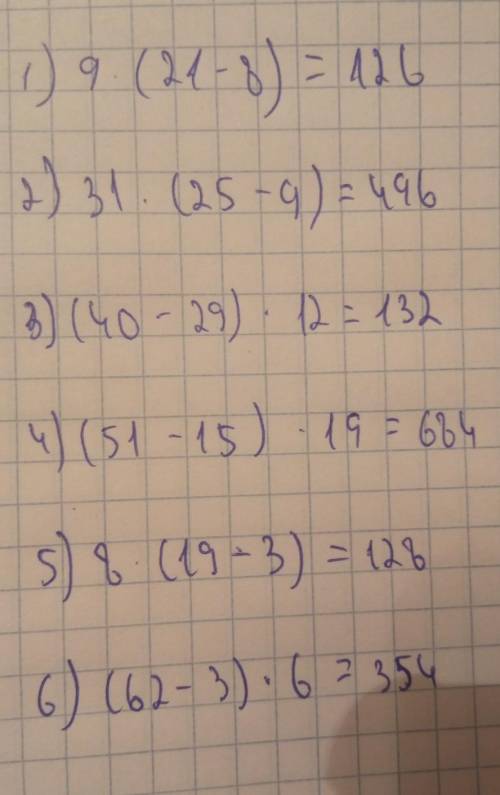 1) 9 · (21 - 8) = 126
2) 31 · (25 - 9) = 496
3) (40 - 29) · 12 = 132
4) (51 - 15) · 19 = 684
5) 8 · (19 - 3) = 128
6) (62 - 3) · 6 = 354